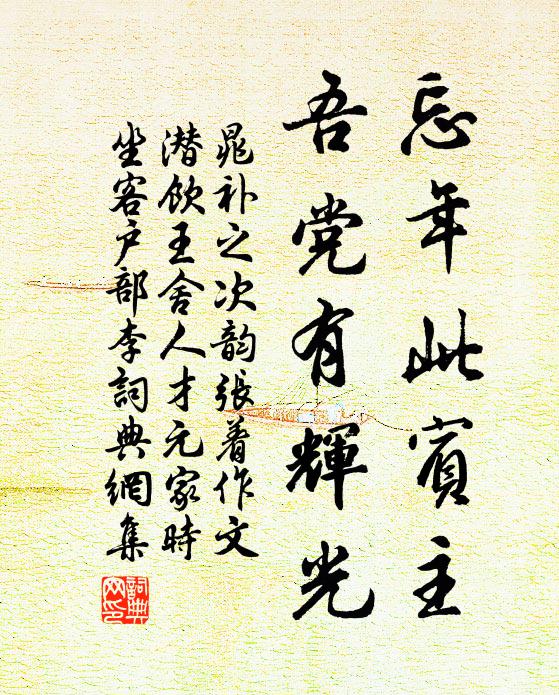 忘年此賓主
吾党有輝光
晁补之次韵張著作文
潜飲王舍人才元家時
坐客户部李詞典網集
詞典网印